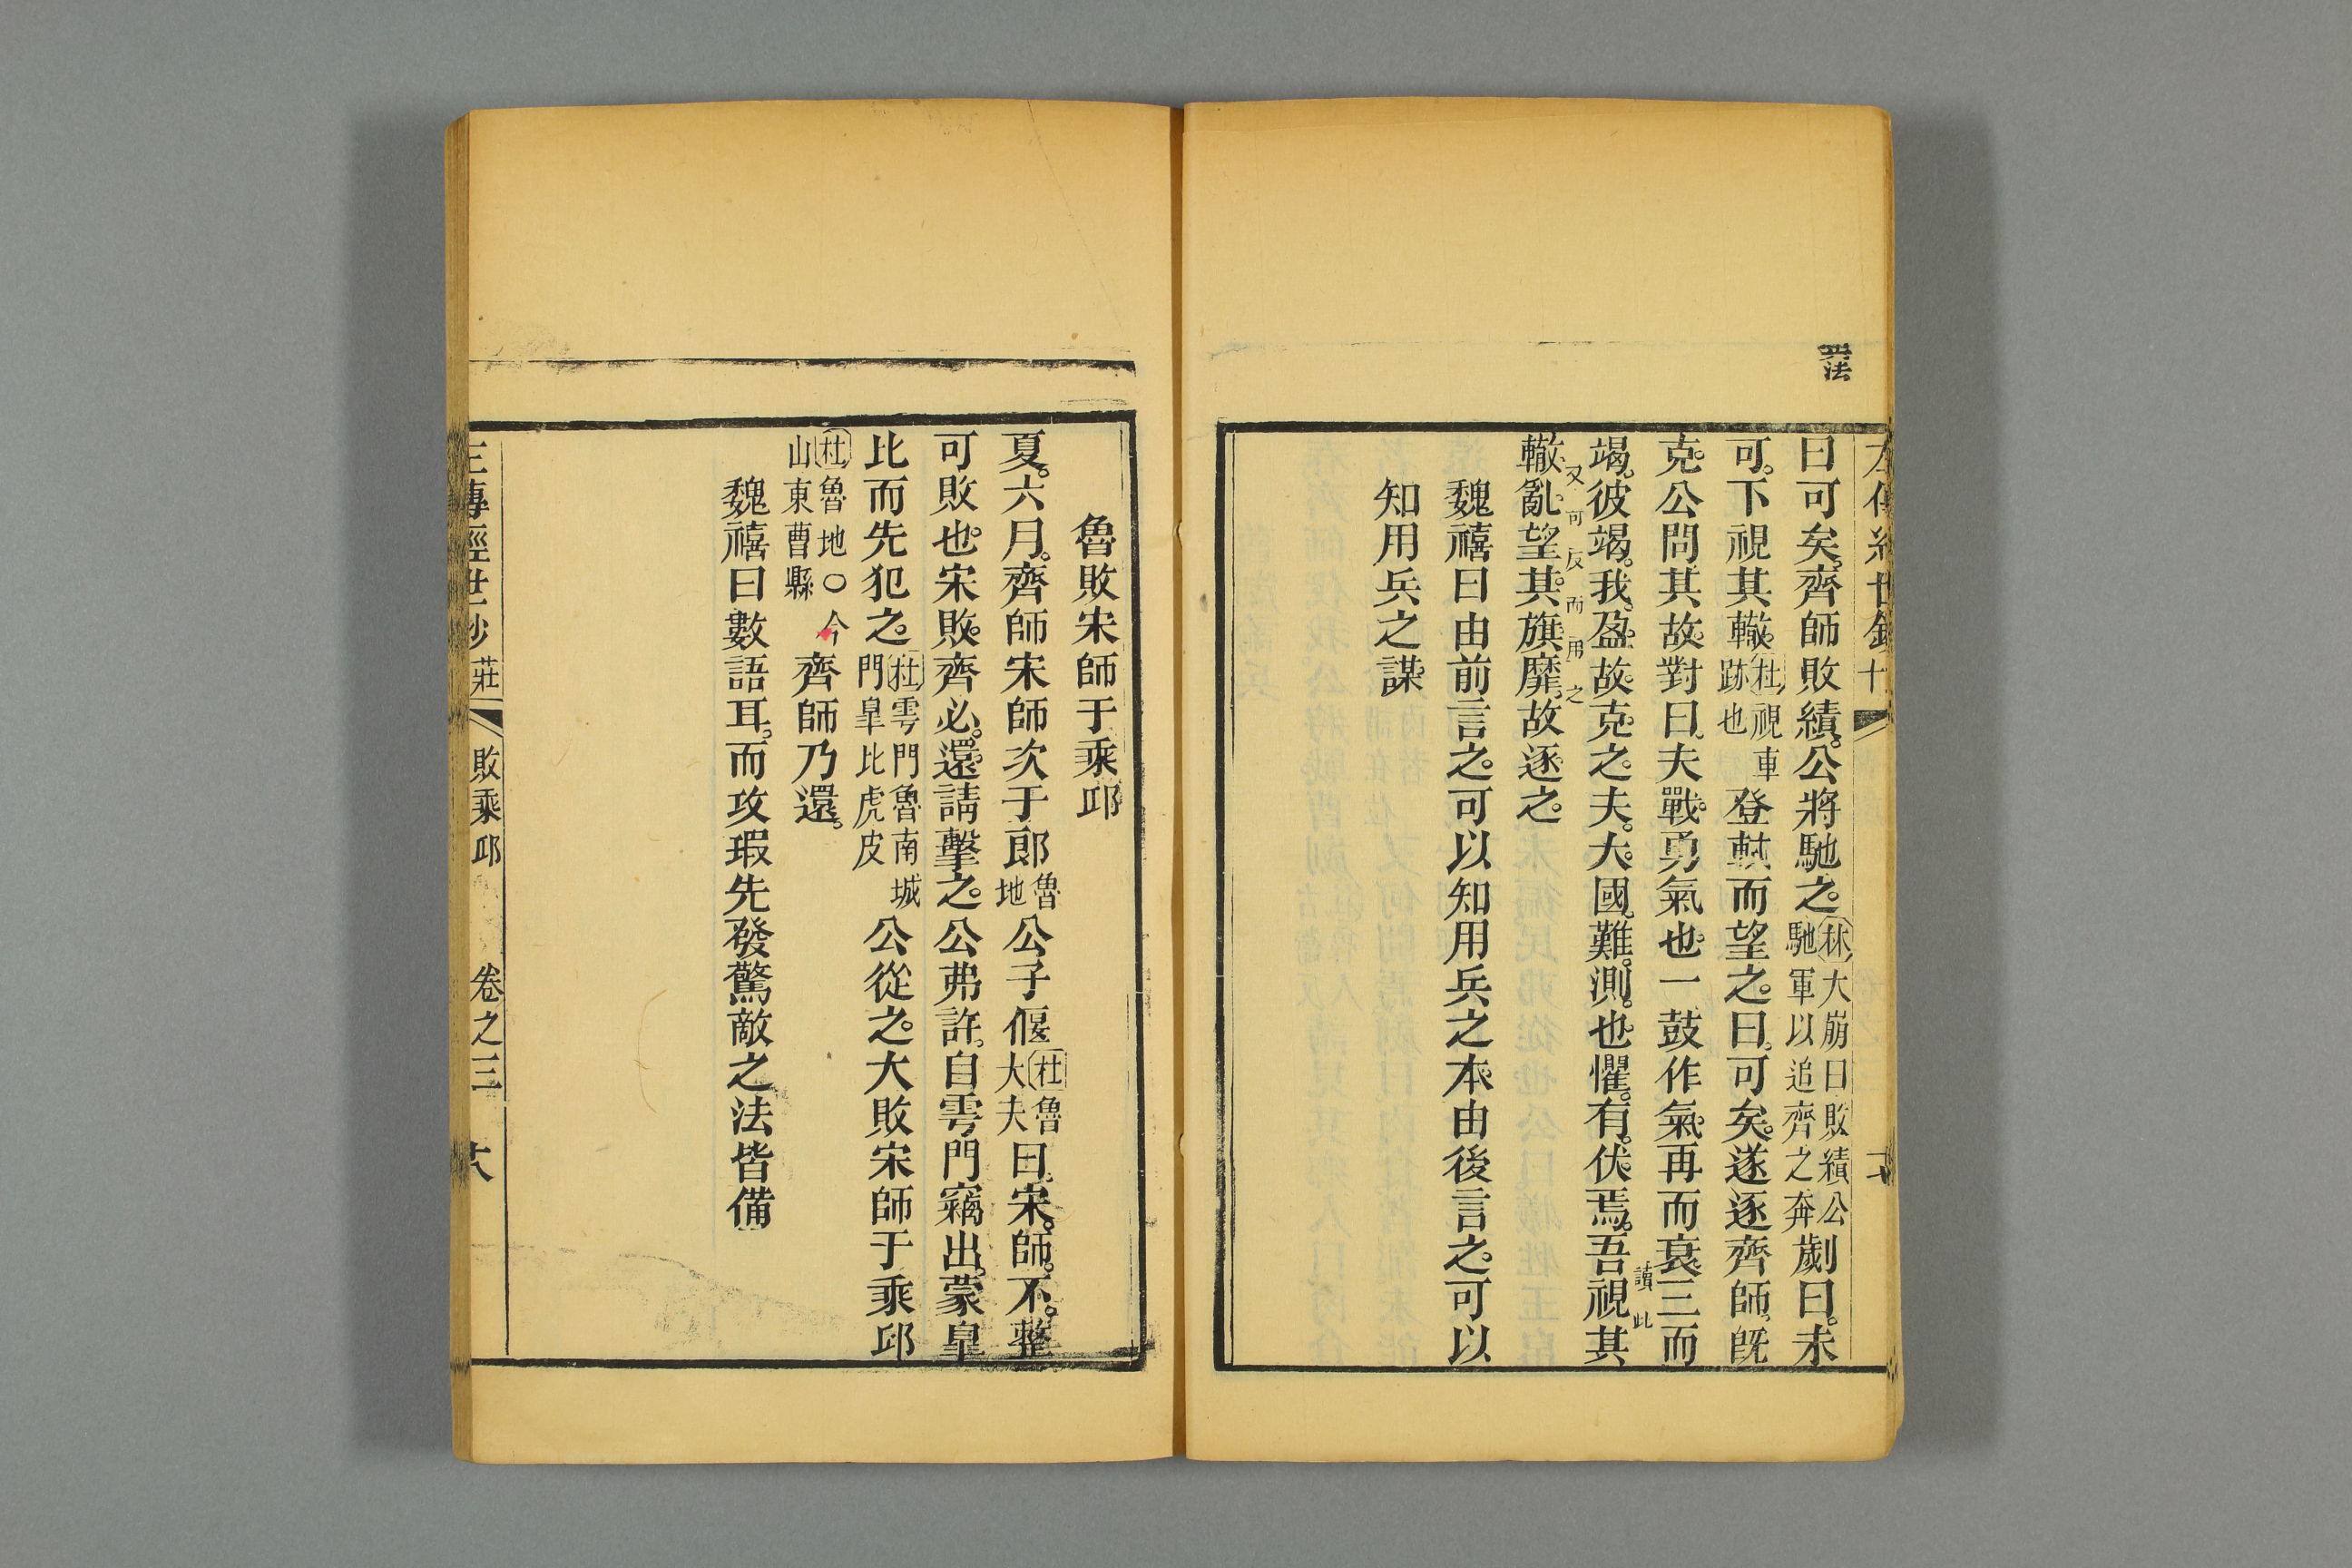 曰可矣齊師敗績。公將馳之。林大崩曰敗績公馳軍以追齊之奔劌曰。未
可。下視其轍。杜視車跡也登軾而望之。曰。可矣。遂逐齊師。既
克。公問其故。對曰。夫戰。勇氣也。一鼓作氣。再而衰。三而
竭。彼竭。我盈。故克之。夫大國。難測。也。懼。有。伏。焉。吾視其
讀此又可反而用之
轍亂。望其旗靡。故逐之。
魏禧曰由前言之。可以知用兵之本。由後言之。可以
知用兵之謀
兵法
魯敗宋師于乘邱
夏。六月。齊師宋師次于郎魯地公子偃杜魯大夫曰。宋。師。不。整
可敗也。宋敗。齊必。還。請擊之。公弗許。自雩門竊出。蒙皐
比而先犯之。杜雩門魯南城門皐比虎皮公從之。大敗宋師于乘邱
杜魯地〇今山東曹縣齊師乃還。
魏禧曰數語耳。而攻瑕先發驚敵之法皆備
左傳經世鈔 莊 敗乘邱 卷之三